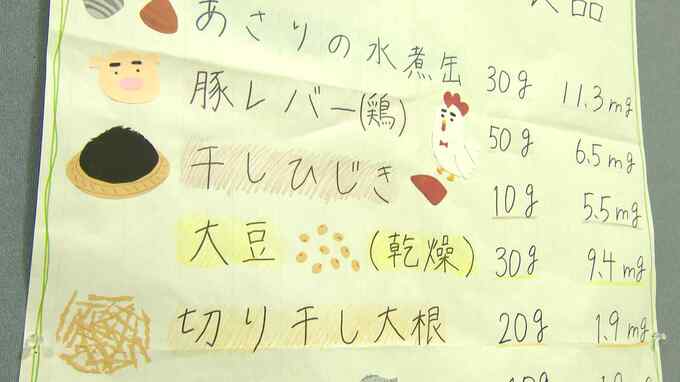 食品
あさりの水煮缶 30g 11.3mg
豚レバー(鶏) 50g 6.5mg
干しひじき 10g 5.5mg
大豆 (乾燥) 30g 9.4mg
切り干し大根 20g 1.9mg